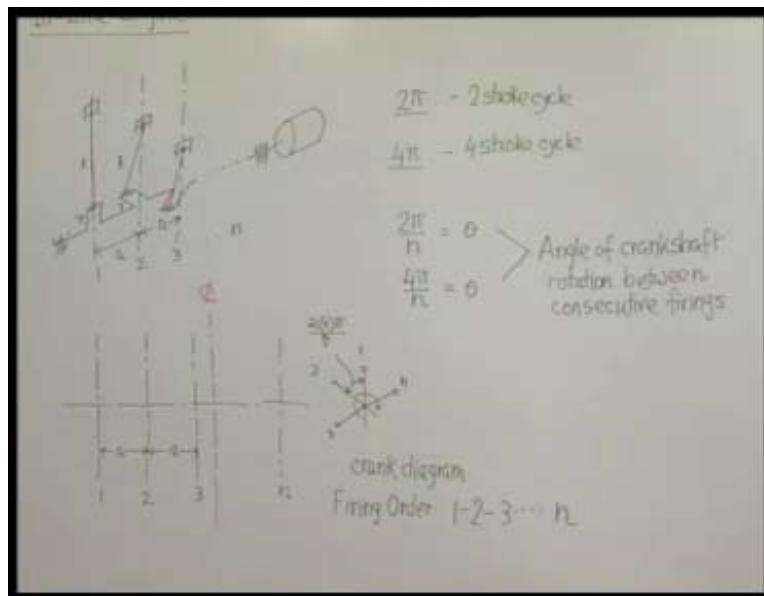 2π - 2 stroke cycle
4π - 4 stroke cycle
2π/n = θ
4π/n = θ
Angle of crankshaft
rotation between
consecutive firings
n
a
a
1 2 3
℄
a a
1 2 3 n
1
2
n
3
crank diagram
Firing Order 1-2-3.... n